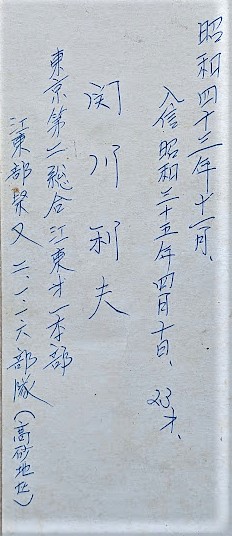 昭和四十三年十一月、
入信 昭和三十五年四月十日、 23才、
関川利夫
東京第二総合江東才一本部
江東部 二、一、二六部隊（高砂地区）